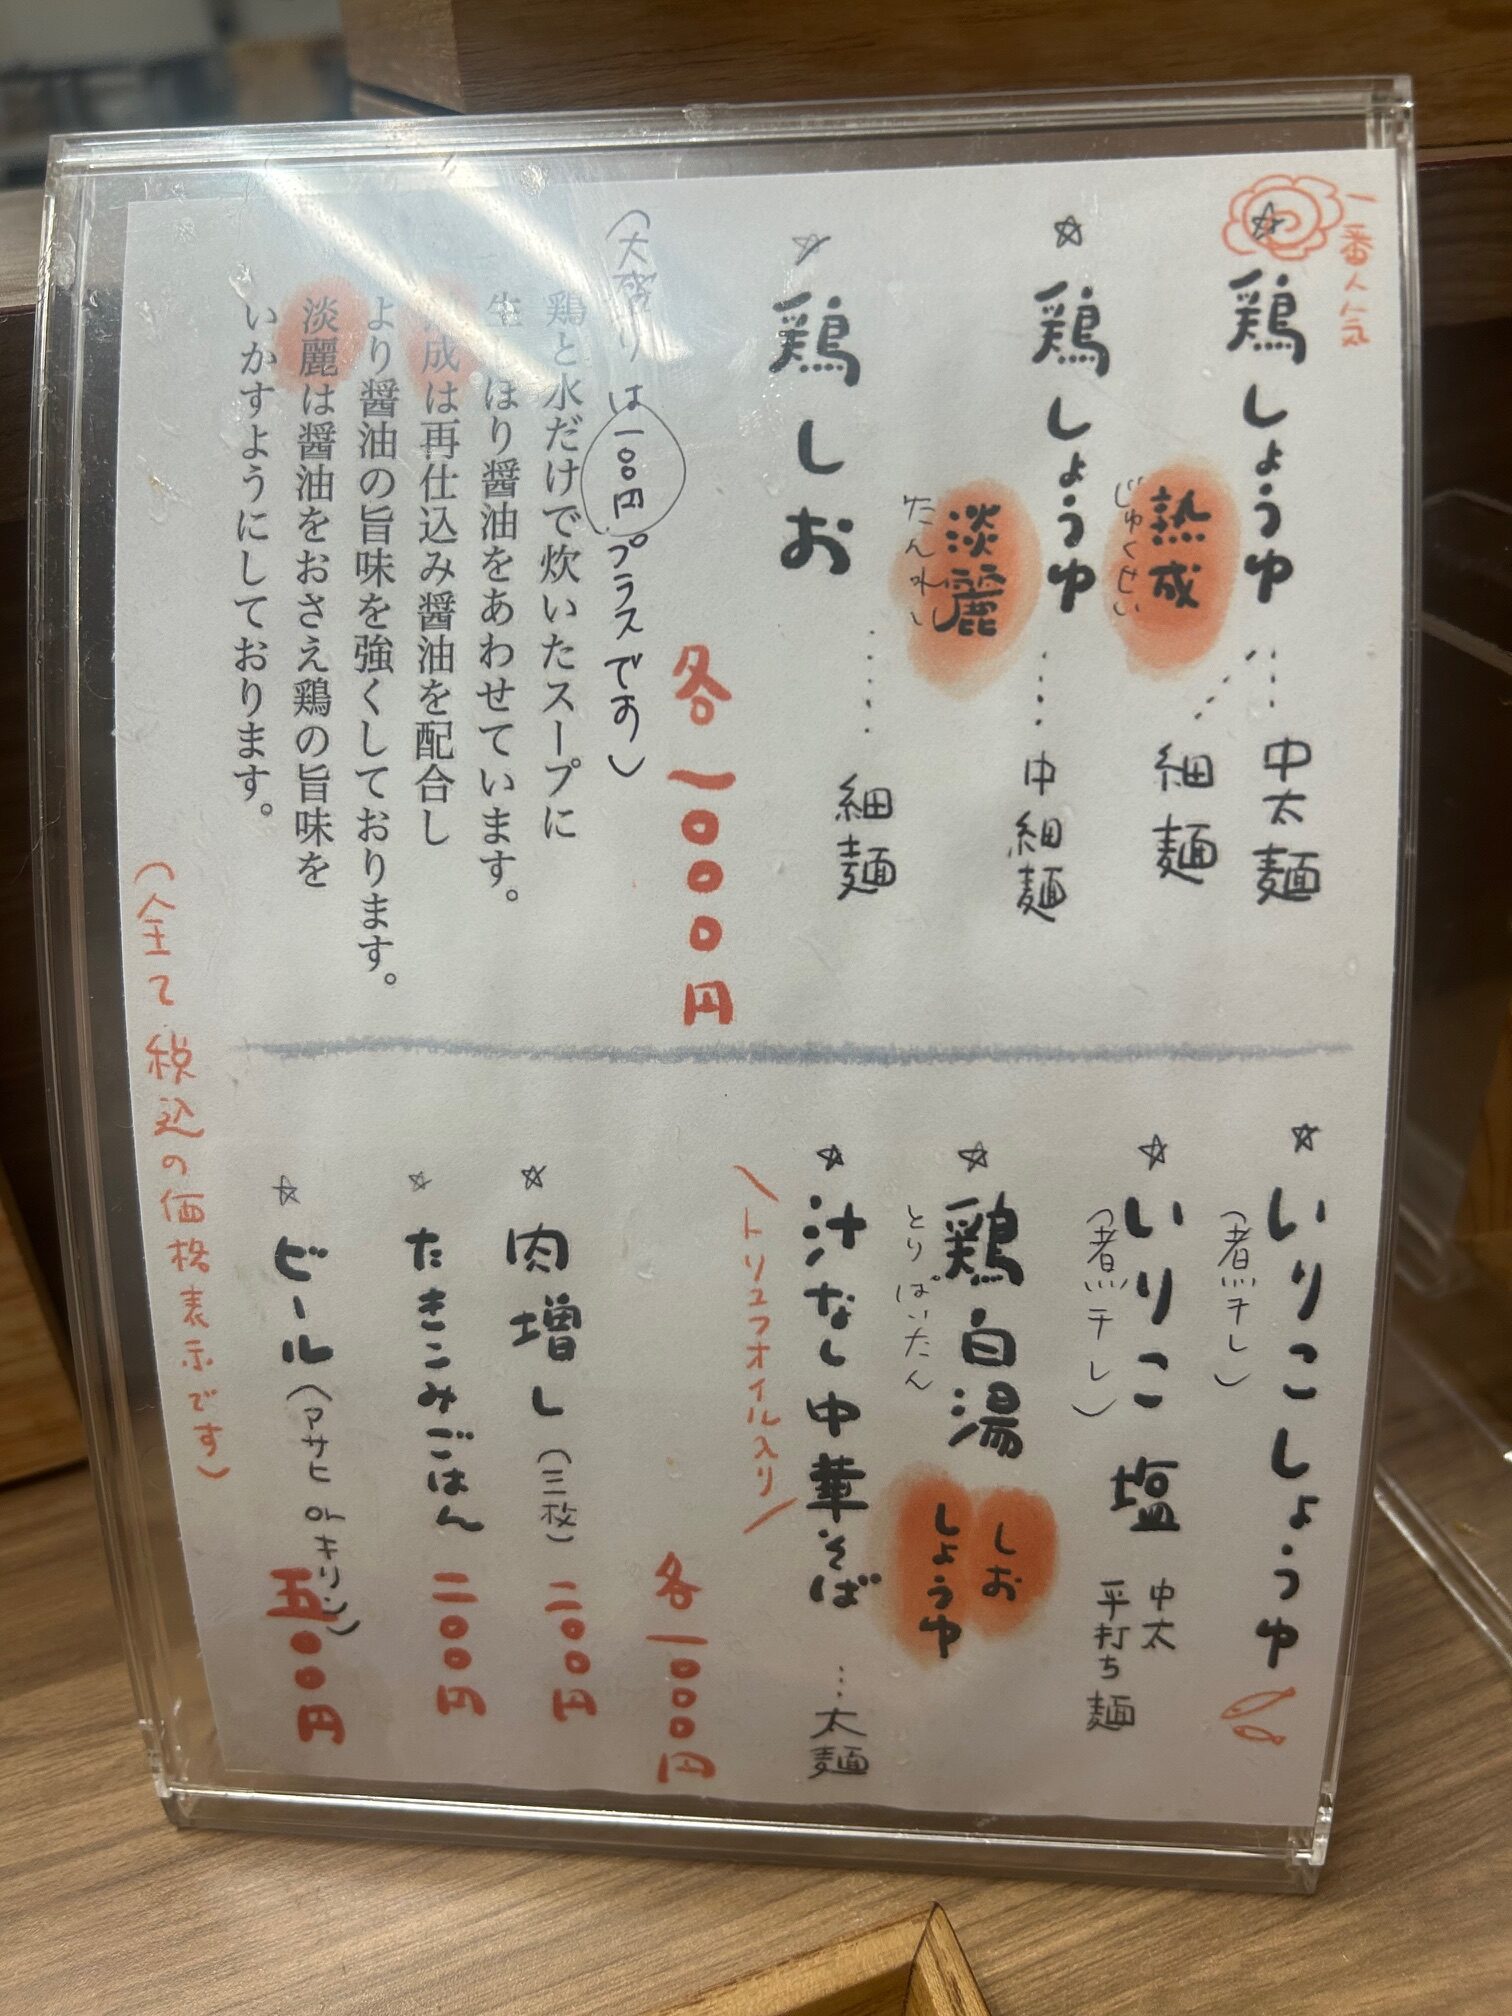 一番人気
☆鶏しょうゆ 熟成 じゅくせい … 中太麺 … 細麺
☆鶏しょうゆ 淡麗 たんれい …… 中細麺
☆鶏しお …… 細麺
各一〇〇〇円
(大盛りは一〇〇円プラスです)
鶏と水だけで炊いたスープに
生しぼり醤油をあわせています。
熟成は再仕込み醤油を配合し
より醤油の旨味を強くしております。
淡麗は醤油をおさえ鶏の旨味を
いかすようにしております。
☆いりこしょうゆ
(煮干し)
☆いりこ塩 中太平打ち麺
(煮干し)
☆鶏白湯 しお しょうゆ
とりぱいたん
☆汁なし中華そば …太麺
\トリュフオイル入り/
各一〇〇〇円
☆肉増し(三枚) 二〇〇円
☆たきこみごはん 二〇〇円
☆ビール(アサヒorキリン) 五〇〇円
(全て税込の価格表示です)